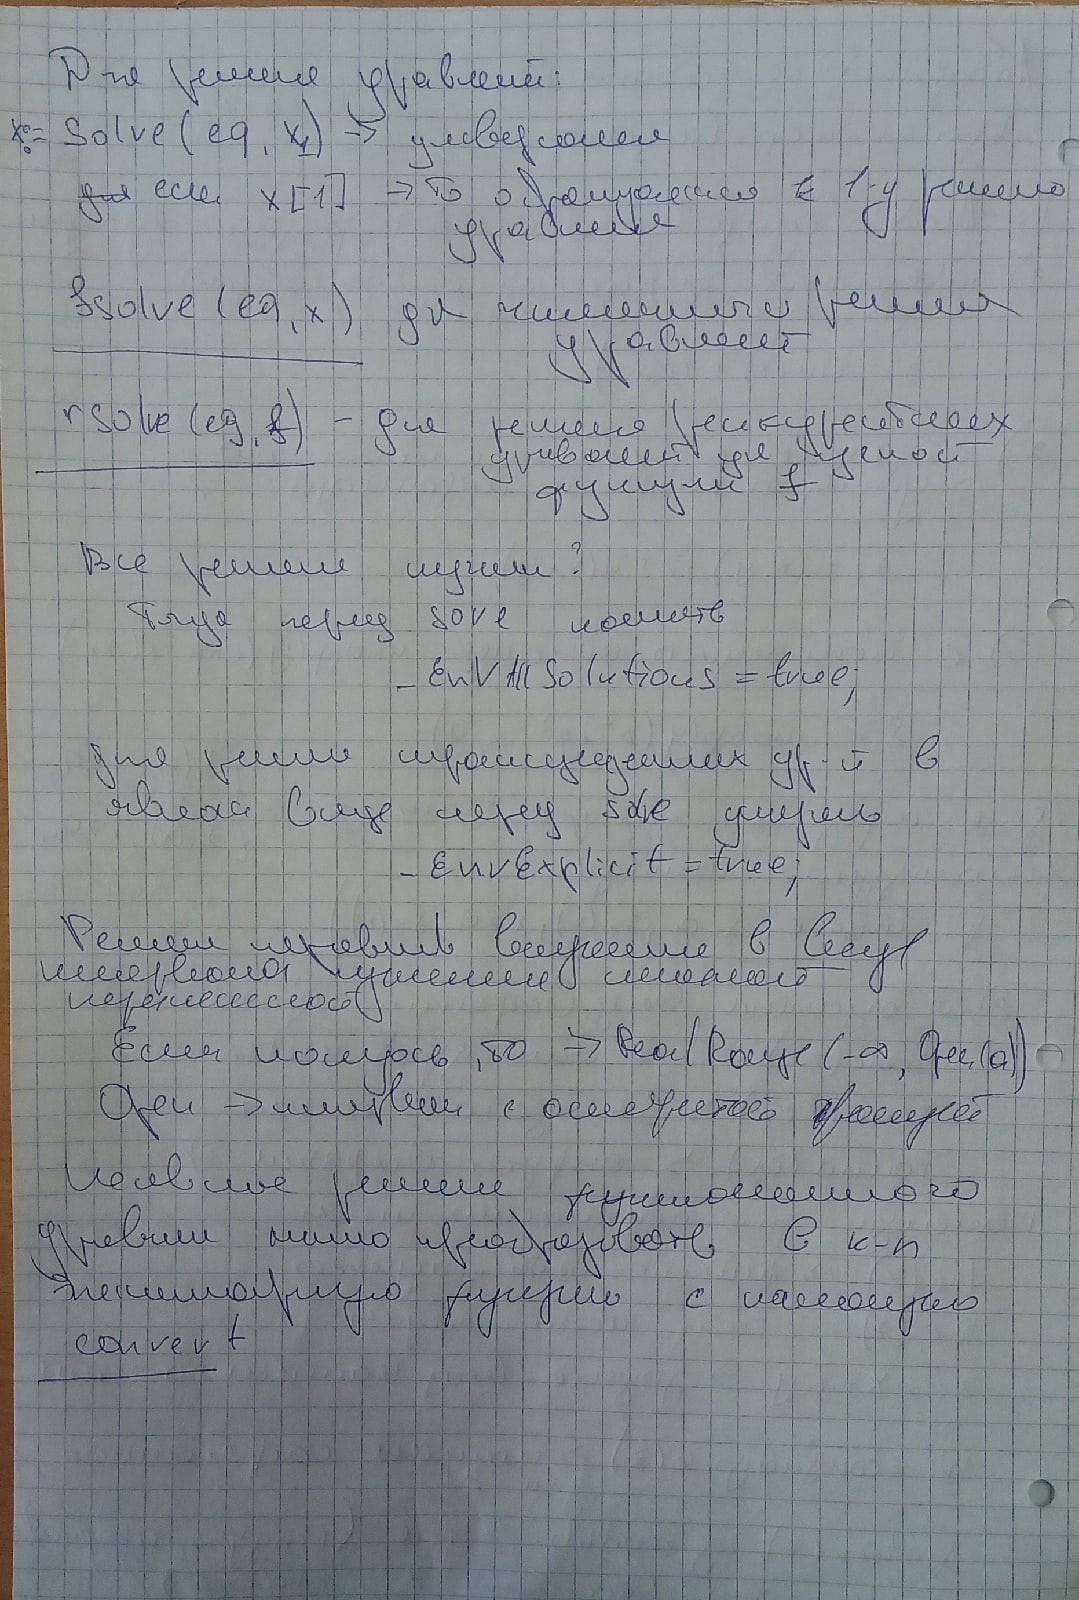 Для решения уравнений:
x:= Solve(eq, x) → универсальная
если x[1] → то обращаемся к 1-у решению
уравнения
fsolve(eq, x) для численного решения
уравнений
rsolve(eq, f) - для решения рекуррентных
уравнений для целой
функции f
Все решения нужны?
Тогда перед sove писать
_EnvAllSolutions = true;
Для решения трансцендентных ур-й в
явном виде перед solve
_EnvExplicit = true;
Решения неравенств в виду
интервала
переменной
Если, то → RealRange(-∞, Open(a))
Open → интервал с открытой границей
Неявное решение функционального
уравнения можно преобразовать в к-л
элементарную функцию с помощью
convert